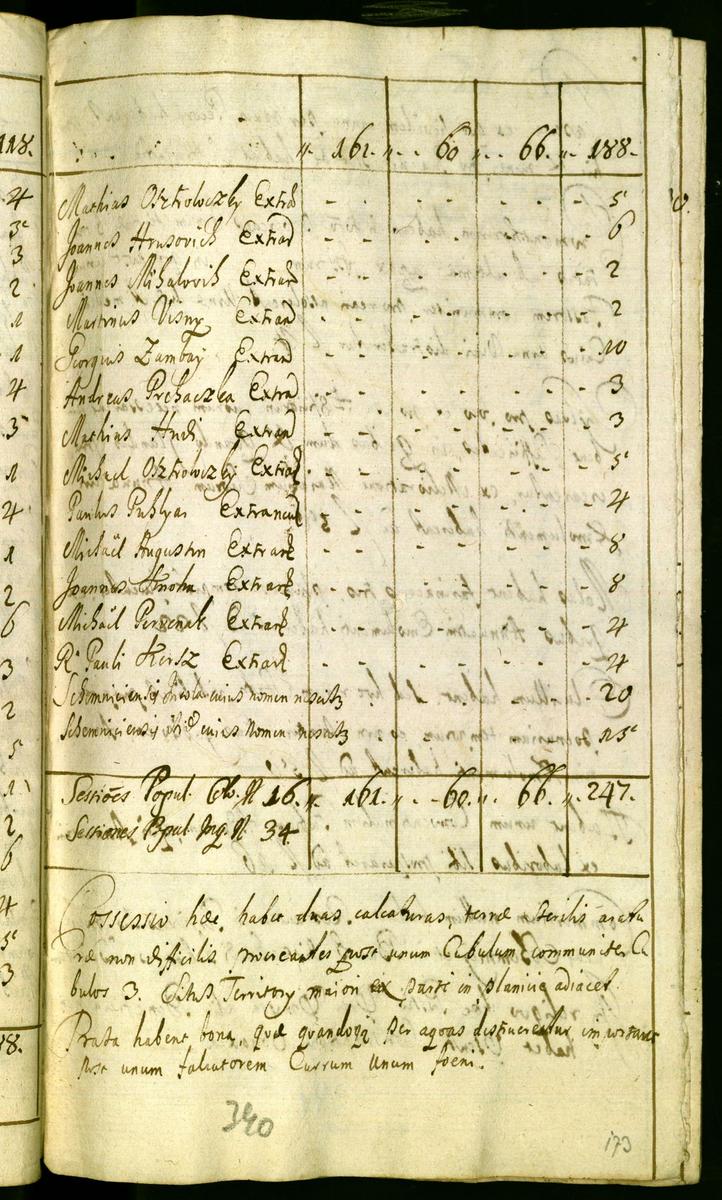 118. „ 161. „ 60 „ 66. „ 188.
4 Mathias Osztroloczky Extra - - - - - - 5
3 Joannes Hrusovich Extra - - - - 6
3 Joannes Mihalovich Extran - - - - 2
2 Martinus Visny Extran - - - - 2
1 Georgius Zambay Extran - - - - 10
1 Andreas Prehaczka Extra - - - - 3
4 Mathias Hudi Extran - - - - 3
3 Michael Osztroloczky Extra - - - - 5
1 Paulus Puklyas Extraneus - - - - 4
4 Michaël Augustin Extran - - - - 8
1 Joannes Extran - - - - 8
2 Michaël Extran - - - - 4
6 R. Pauli Hersz Extran - - - - 4
3 Schemniciensis Incola cuius nomen nescitz - - 20
2 Schemniciensis cuius nomen nescitz - - 15
5
1 Sessiões Popul. N. 16. „ 161. „ 60. „ 66. „ 247.
2 Sessiones Popul. Inq. N. 34
6
4 Possessio hæc habet duas calcaturas, terræ sterilis aratu
5 ræ non difficilis procreantes post unum Cubulum communiter Cu
3 bulos 3. Situs Territory maiori ex parte in planicie adiacet.
18. Prata habent bona, quæ quandoqz per aquas
post unum falcatorem Currum unum foeni.
340
173